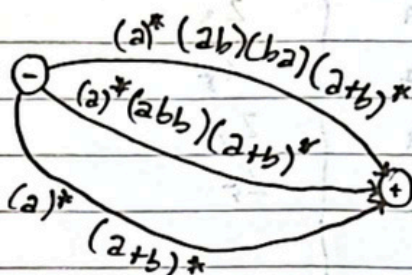 (a)* (ab)(ba)(a+b)*
-
(a)*(abb)(a+b)*
+
(a)*
(a+b)*